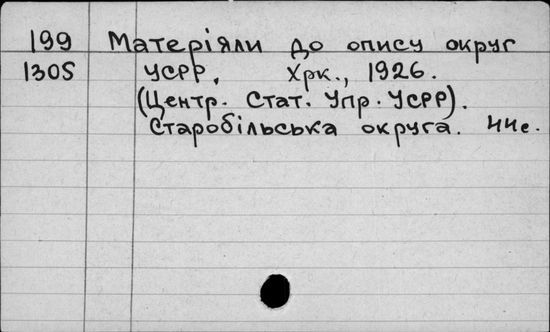 199 Матеріяли до опису округ
1305 УСРР, Хрк., 1926.
(Центр. Стат. Упр. УСРР).
Старобільська округа. 44с.